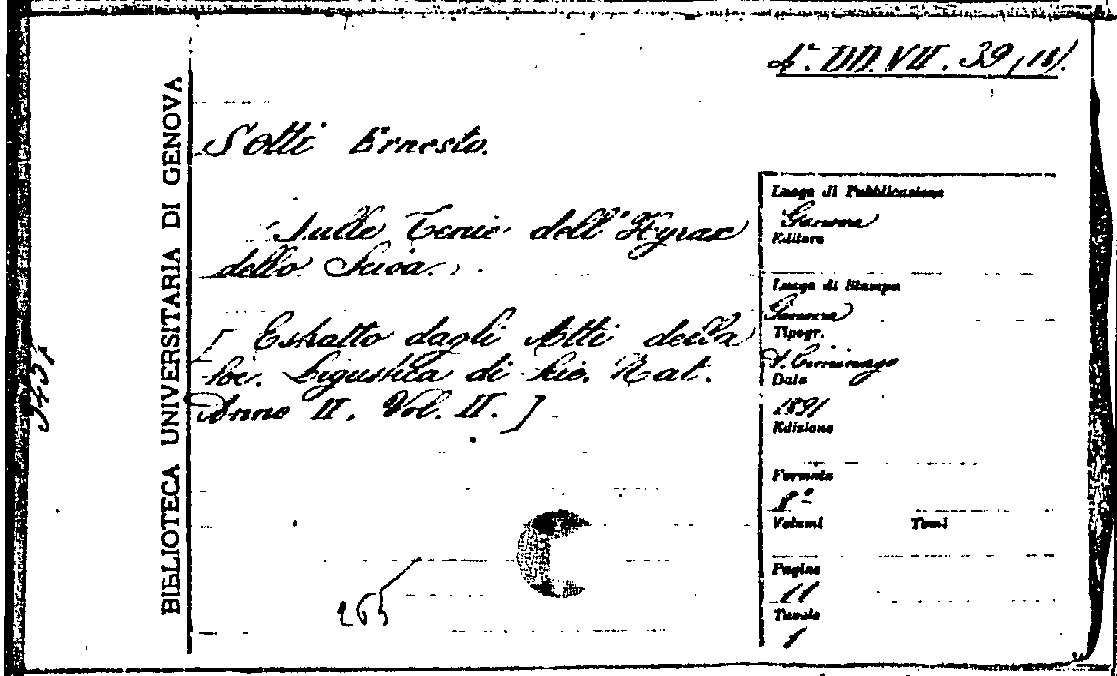 4°. DD. VII. 39 (18).
BIBLIOTECA UNIVERSITARIA DI GENOVA
Setti Ernesto.
Sulle Tenie dell'Hyrax
dello Scioa.
[Estratto dagli Atti della
Soc. Ligustica di Sic. Nat.
Anno II, Vol. II.]
265
Luogo di Pubblicazione
Genova
Editore
Luogo di Stampa
Genova
Tipogr.
Data
1891
Edizione
Formato
8°
Volumi Tomi
Pagine
11
Tavole
1